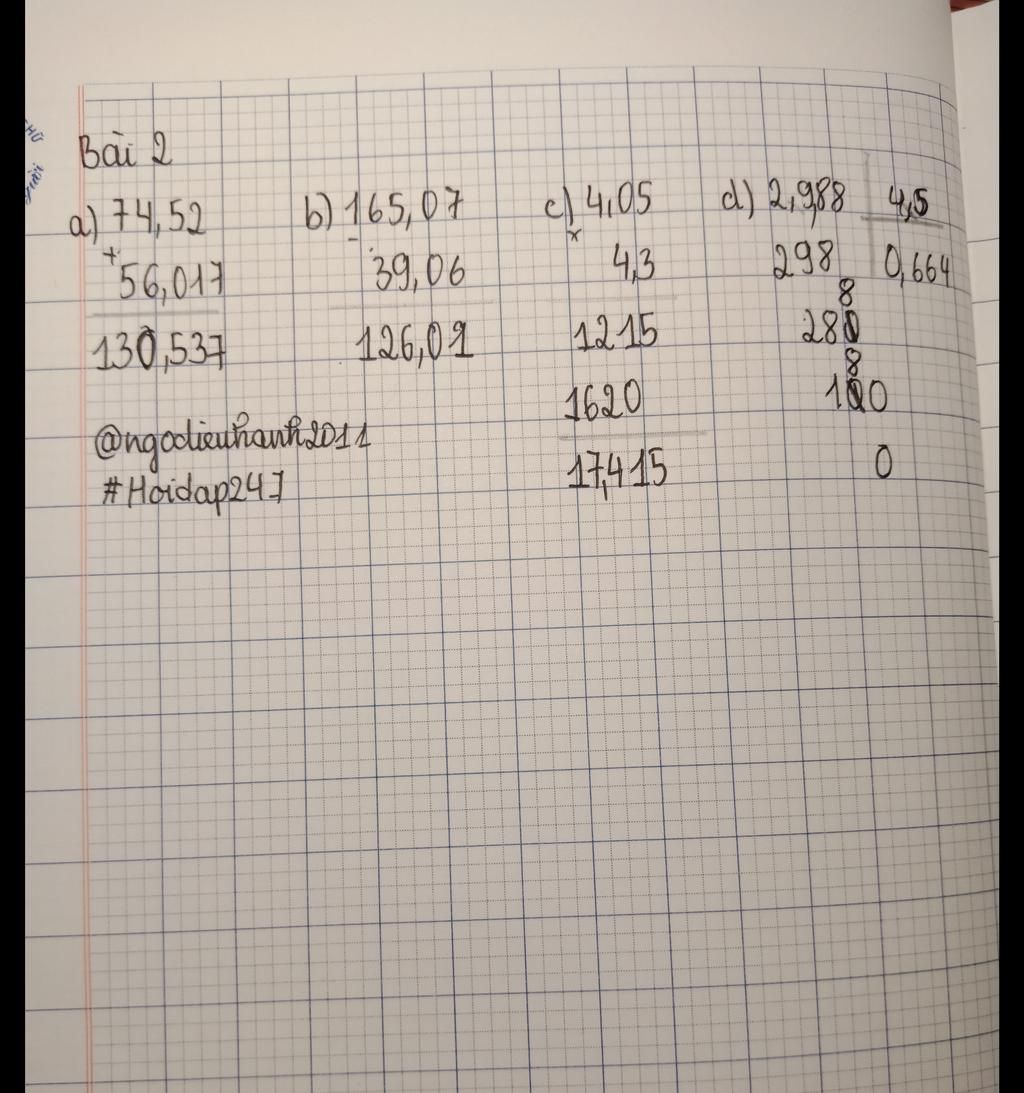 Bài 2
a) 74,52 b) 165,07 c) 4,05 d) 2,988 4,5
+ - x
56,017 39,06 4,3 298 0,664
8
130,537 126,01 1215 280
8
1620 100
@ngodieuhanh2011
17,415 0
#Hoidap247